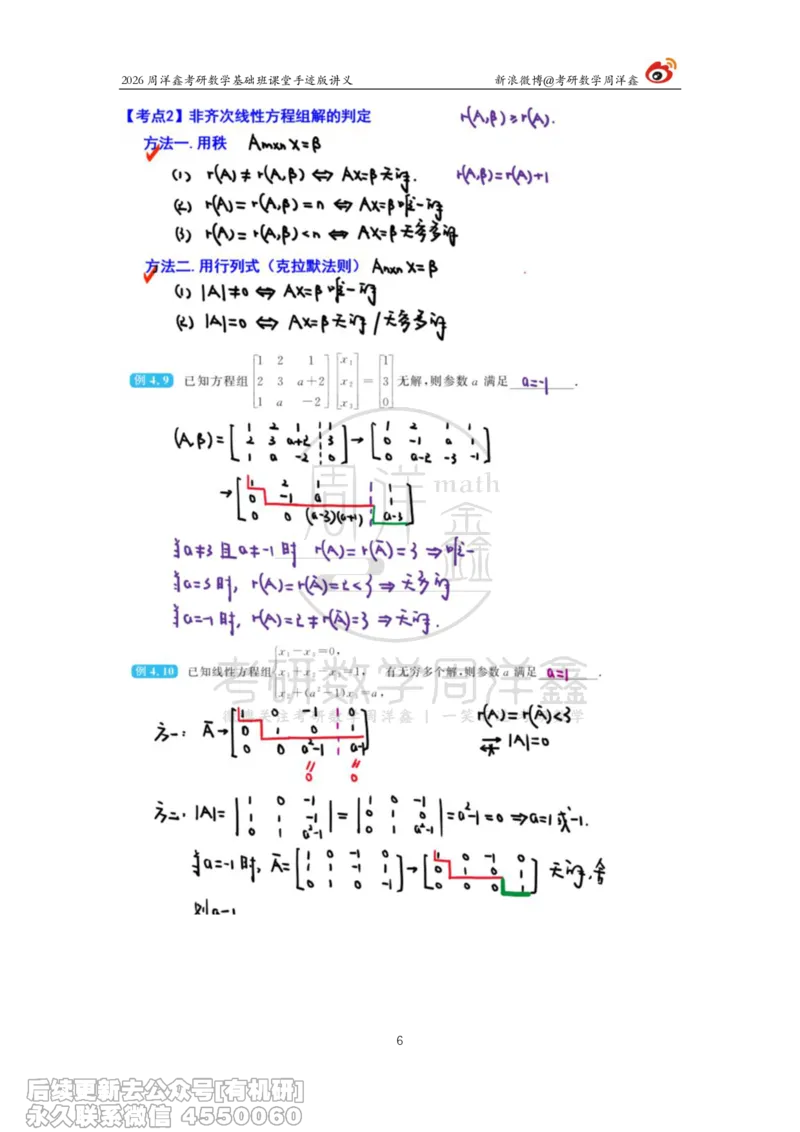 2026 周洋鑫考研数学基础班课堂手迹版讲义 新浪微博@考研数学周洋鑫
【考点2】非齐次线性方程组解的判定 r(A,β)≥r(A).
方法一.用秩 Am×n X=β
(1) r(A)≠r(A,β) ⇔ AX=β无解. r(A,β)=r(A)+1
(2) r(A)=r(A,β)=n ⇔ AX=β唯一解
(3) r(A)=r(A,β)<n ⇔ AX=β无穷多解
方法二.用行列式（克拉默法则） An×n X=β
(1) |A|≠0 ⇔ AX=β唯一解
(2) |A|=0 ⇔ AX=β无解/无穷多解
例 4.9 已知方程组 [1 2 1; 2 3 a+2; 1 a -2] [x₁; x₂; x₃] = [1; 3; 0] 无解,则参数 a 满足 a=-1 .
(A,β)= [1 2 1 1; 2 3 a+2 3; 1 a -2 0] → [1 2 1 1; 0 -1 a 1; 0 a-2 -3 -1]
→ [1 2 1 1; 0 -1 a 1; 0 0 (a-3)(a+1) a-3]
当a≠3且a≠-1时 r(A)=r(Ā)=3 ⇒唯一
当a=3时, r(A)=r(Ā)=2<3 ⇒无穷多解
当a=-1时, r(A)=2≠r(Ā)=3 ⇒无解.
例 4.10 已知线性方程组 {x₁-x₃=0, x₁+x₂-x₃=1, x₂+(a²-1)x₃=a, 有无穷多个解,则参数 a 满足 a=1 .
方一: Ā→ [1 0 -1 0; 0 1 0 1; 0 0 a²-1 a-1] r(A)=r(Ā)<3
|A|=0
0 0
方二. |A|= |1 0 -1; 1 1 -1; 0 1 a²-1| = |1 0 -1; 0 1 0; 0 1 a²-1| =a²-1=0 ⇒a=1或-1.
当a=-1时, Ā= [1 0 -1 0; 1 1 -1 1; 0 1 0 -1] → [1 0 -1 0; 0 1 0 1; 0 0 0 1] 无解,舍
则a=1
周洋鑫
math
考研数学周洋鑫
6
后续更新去公众号[有机研]
永久联系微信 4550060